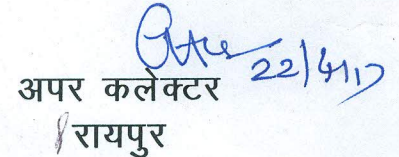 22/4/17
अपर कलेक्टर
रायपुर